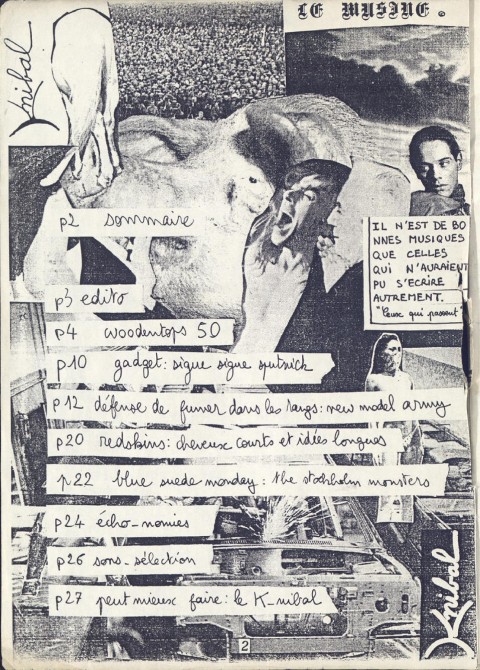 LE MUSINE.
Knibal
IL N'EST DE BO
NNES MUSIQUES
QUE CELLES
QUI N'AURAIENT
PU S'ECRIRE
AUTREMENT.
"Ceux qui passent"
p2 sommaire
p3 edito
p4 woodentops 50
p10 gadget: sigue sigue sputnick
p12 défense de fumer dans les rangs: new model army
p20 redskins: cheveux courts et idées longues
p22 blue suede monday: the stockholm monsters
p24 écho-nomies
p26 sons-sélection
p27 peut mieux faire: le K-nibal
Knibal
2